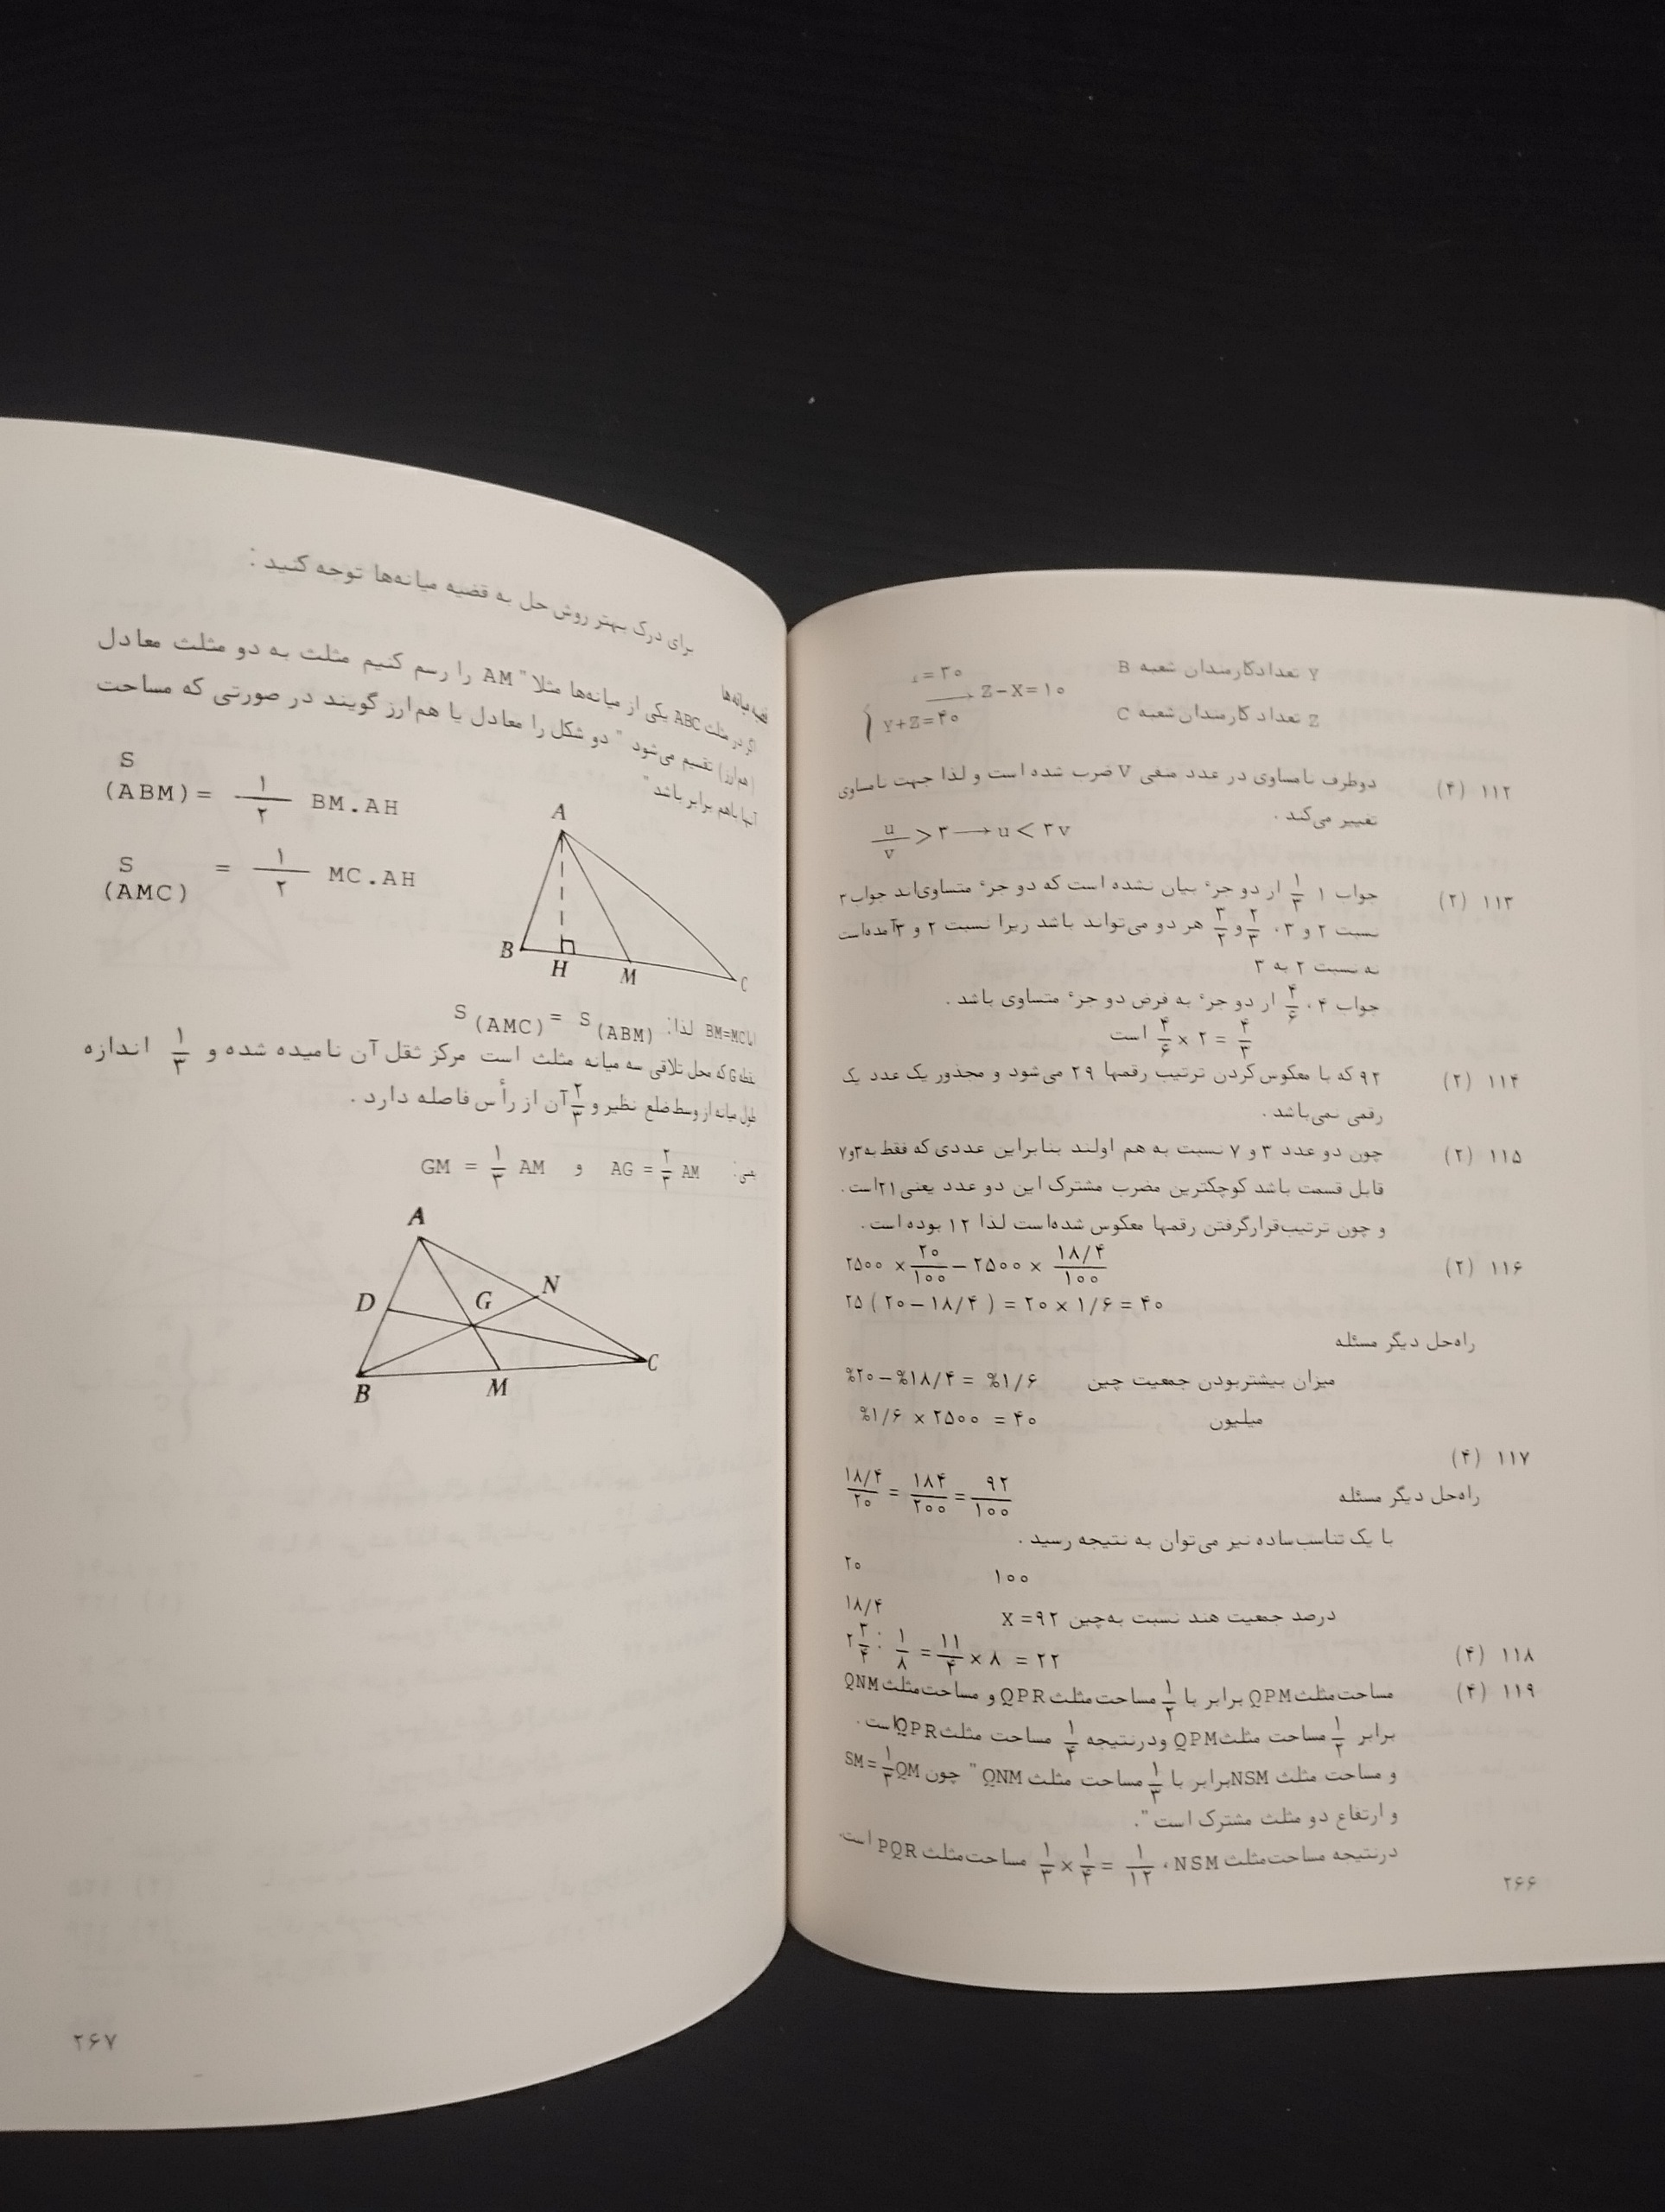 Y تعداد کارمندان شعبه B
=۳۰
Z-X=۱۰
Z تعداد کارمندان شعبه C
Y+Z=۴۰
۱۱۲ (۴) دوطرف نامساوی در عدد منفی V ضرب شده است و لذا جهت نامساوی
تغییر می‌کند .
u/v > ۳ ⟶ u < ۳v
۱۱۳ (۲) جواب ۱ ۱/۳ از دو جزء بیان نشده است که دو جزء متساوی‌اند جواب ۳
نسبت ۲ و ۳، ۲/۳ و ۳/۲ هر دو می‌تواند باشد زیرا نسبت ۲ و ۳ آمده‌است
نه نسبت ۲ به ۳
جواب ۴، ۴/۶ از دو جزء به فرض دو جزء متساوی باشد .
۴/۶ × ۲ = ۴/۳ است
۱۱۴ (۲) ۹۲ که با معکوس کردن ترتیب رقمها ۲۹ می‌شود و مجذور یک عدد یک
رقمی نمی‌باشد .
۱۱۵ (۲) چون دو عدد ۳ و ۷ نسبت به هم اولند بنابراین عددی که فقط به ۳ و ۷
قابل قسمت باشد کوچکترین مضرب مشترک این دو عدد یعنی ۲۱ است .
و چون ترتیب قرارگرفتن رقمها معکوس شده‌است لذا ۱۲ بوده است .
۱۱۶ (۲) ۲۵۰۰ × ۲۰/۱۰۰ − ۲۵۰۰ × ۱۸/۴/۱۰۰
۲۵ (۲۰−۱۸/۴) = ۲۰ × ۱/۶ = ۴۰
راه‌حل دیگر مسئله
میزان بیشتربودن جمعیت چین %۲۰−%۱۸/۴ = %۱/۶
میلیون %۱/۶ × ۲۵۰۰ = ۴۰
۱۱۷ (۴)
راه‌حل دیگر مسئله ۱۸/۴/۲۰ = ۱۸۴/۲۰۰ = ۹۲/۱۰۰
با یک تناسب ساده نیز می‌توان به نتیجه رسید .
۲۰ ۱۰۰
۱۸/۴ X = ۹۲ درصد جمعیت هند نسبت به‌چین
۱۱۸ (۴) ۲ ۳/۴ : ۱/۸ = ۱۱/۴ × ۸ = ۲۲
۱۱۹ (۴) مساحت مثلث QPM برابر با ۱/۲ مساحت مثلث QPR و مساحت مثلث QNM
برابر ۱/۲ مساحت مثلث QPM ودرنتیجه ۱/۴ مساحت مثلث QPR است .
و مساحت مثلث NSM برابر با ۱/۳ مساحت مثلث QNM " چون SM=۱/۳QM
و ارتفاع دو مثلث مشترک است ".
درنتیجه مساحت مثلث NSM ، ۱/۳ × ۱/۴ = ۱/۱۲ مساحت مثلث PQR است
۲۶۶
برای درک بهتر روش حل به قضیه میانه‌ها توجه کنید :
قضیه میانه‌ها
اگر در مثلث ABC یکی از میانه‌ها مثلا" AM را رسم کنیم مثلث به دو مثلث معادل
(هم‌ارز) تقسیم می‌شود " دو شکل را معادل یا هم‌ارز گویند در صورتی که مساحت
آنها باهم برابر باشد "
S (ABM) = ۱/۲ BM.AH
S (AMC) = ۱/۲ MC.AH
A
B H M C
BM=MC لذا: S (AMC) = S (ABM)
نقطه G که محل تلاقی سه میانه مثلث است مرکز ثقل آن نامیده شده و ۱/۳ اندازه
طول میانه از وسط ضلع نظیر و ۲/۳ آن از رأس فاصله دارد .
AG = ۲/۳ AM و GM = ۱/۳ AM
A
D G N
B M C
۲۶۷